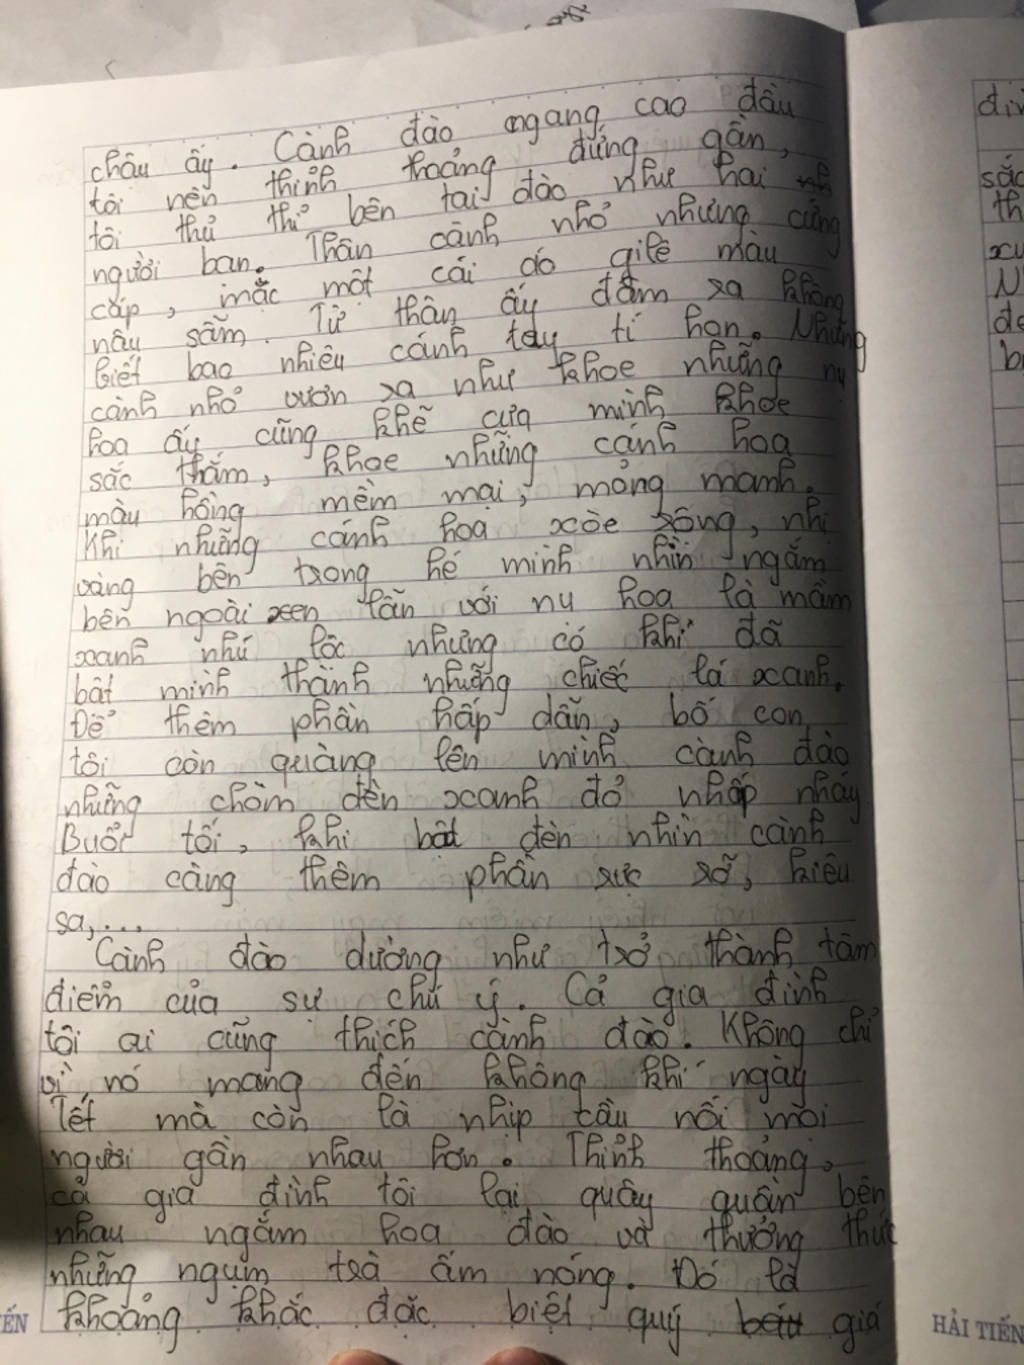 châu ấy. Cành đào ngang cao đầu
tôi nên thỉnh thoảng đứng gần,
tôi thủ thỉ bên tai đào như hai
người bạn. Thân cành nhỏ nhưng cứng
cáp, mặc một cái áo gilê màu
nâu sẫm. Từ thân ấy đâm ra không
biết bao nhiêu cánh tay tí hon. Những
cành nhỏ vươn ra như khoe những nụ
hoa ấy cũng khẽ cựa mình khoe
sắc thắm, khoe những cánh hoa
màu hồng mềm mại, mỏng manh.
Khi những cánh hoa xòe rộng, nhị
vàng bên trong hé mình nhìn ngắm
bên ngoài xen lẫn với nụ hoa là mầm
xanh nhú lộc nhưng có khi đã
bật mình thành những chiếc lá xanh.
Để thêm phần hấp dẫn, bố con
tôi còn quàng lên mình cành đào
những chòm đèn xanh đỏ nhấp nháy
Buổi tối, khi bật đèn nhìn cành
đào càng thêm phần rực rỡ, kiêu
sa,...
Cành đào dường như trở thành tâm
điểm của sự chú ý. Cả gia đình
tôi ai cũng thích cành đào. Không chỉ
vì nó mang đến không khí ngày
Tết mà còn là nhịp cầu nối mọi
người gần nhau hơn. Thỉnh thoảng,
cả gia đình tôi lại quây quần bên
nhau ngắm hoa đào và thưởng thức
những ngụm trà ấm nóng. Đó là
khoảng khắc đặc biệt quý giá
HẢI TIẾN